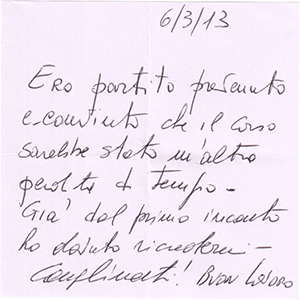 6/3/13
Ero partito prevenuto
e convinto che il corso
sarebbe stato un'altra
perdita di tempo -
Già dal primo incontro
ho dovuto ricredermi -
Complimenti! Buon lavoro